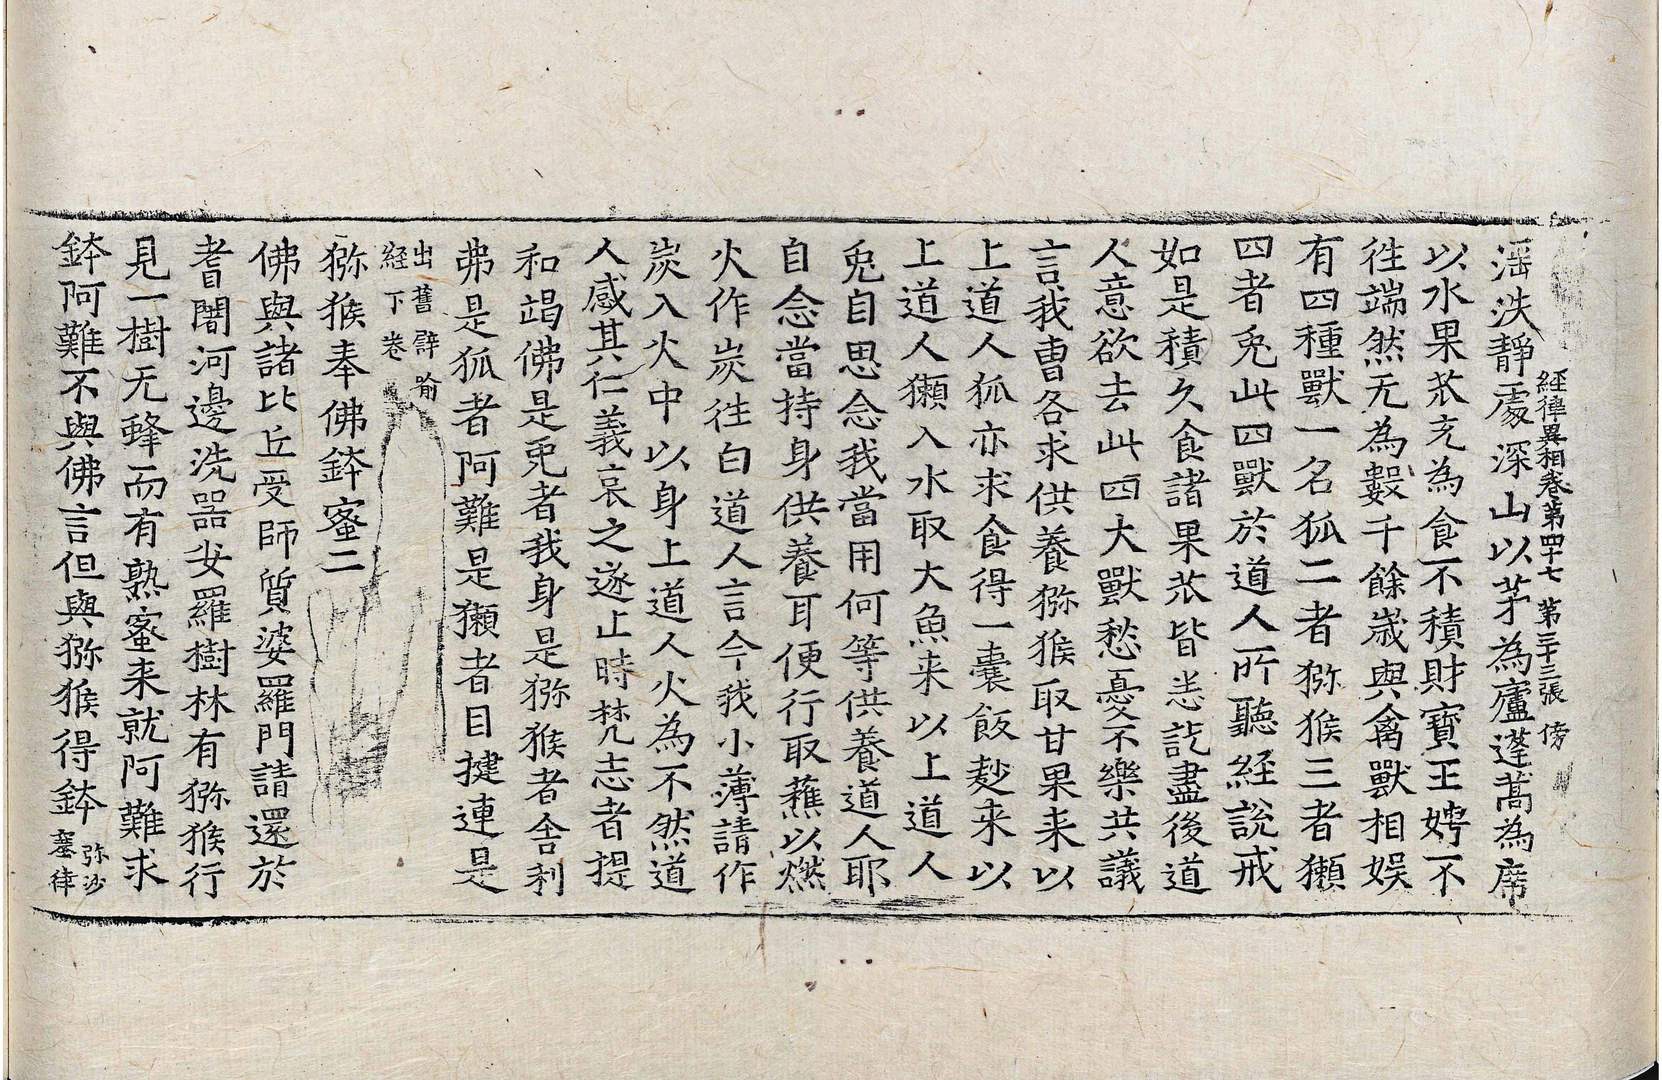 經律異相卷第四十七 第二十三張 傍
滛泆靜處深山以茅為廬蓬蒿為席
以水果苽充為食不積財寶王娉不
徃端然无為數千餘歲與禽獸相娱
有四種獸一名狐二者猕猴三者獺
四者兎此四獸於道人所聽經說戒
如是積久食諸果苽皆悉訖盡後道
人意欲去此四大獸愁憂不樂共議
言我曺各求供養猕猴取甘果来以
上道人狐亦求食得一囊飯麨来以
上道人獺入水取大魚来以上道人
兎自思念我當用何等供養道人耶
自念當持身供養耳便行取蕉以燃
火作炭徃白道人言今我小薄請作
炭入火中以身上道人火為不然道
人感其仁義哀之遂止時梵志者提
和竭佛是兎者我身是猕猴者舎利
弗是狐者阿難是獺者目揵連是
出舊譬喻
経下卷
猕猴奉佛鉢蜜二
佛與諸比丘受師質婆羅門請還於
耆闍河邊洗器娑羅樹林有猕猴行
見一樹无蜂而有熟蜜来就阿難求
鉢阿難不與佛言但與猕猴得鉢 弥沙塞律